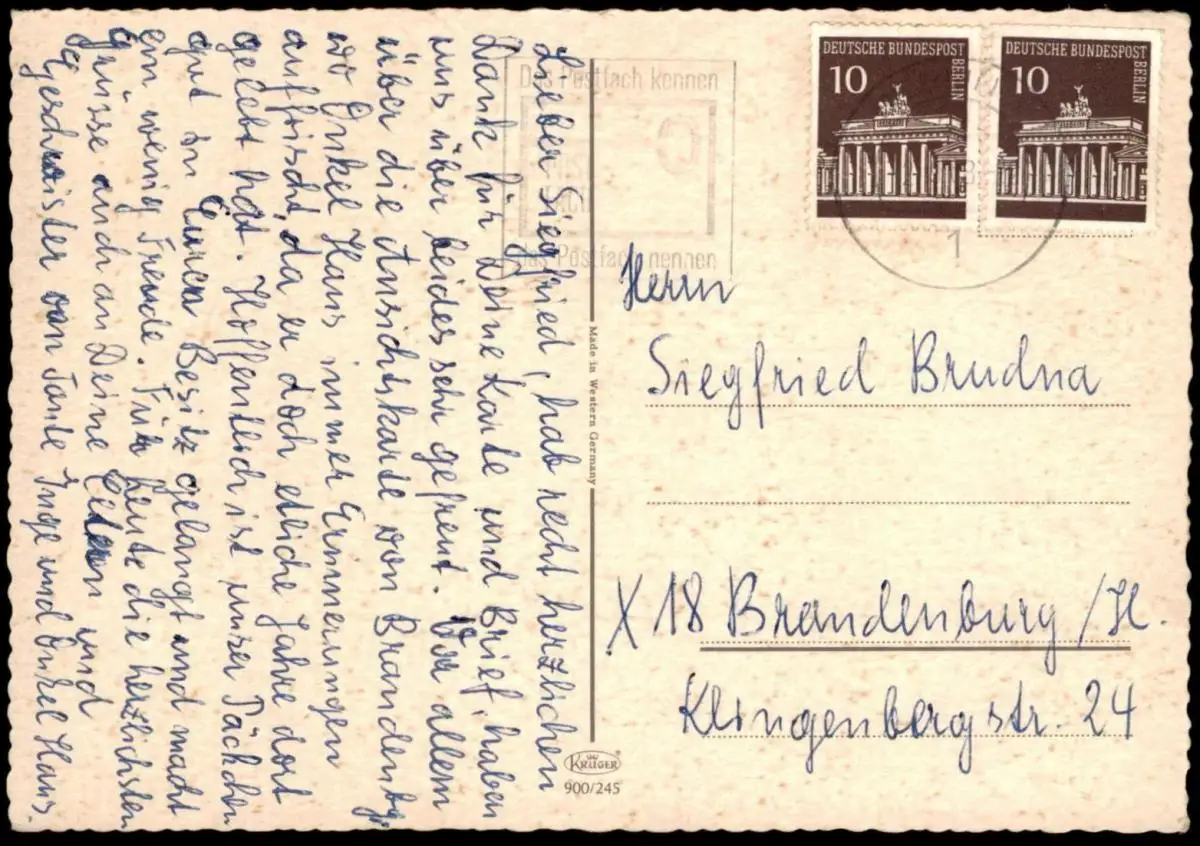 Lieber Siegfried, hab recht herzlichen
Dank für Deine Karte und Brief, haben
uns über beides sehr gefreut. Vor allem
über die Ansichtskarte von Brandenbg.
wo Onkel Hans immer Erinnerungen
auffrischt, da er doch etliche Jahre dort
gelebt hat. Hoffentlich ist unser Päckchen
gut in Euren Besitz gelangt und macht
ein wenig Freude. Für heute die herzlichsten
Grüsse auch an Deine Eltern und
Geschwister von Tante Inge und Onkel Hans.
Das Postfach kennen
das Postfach nennen
DEUTSCHE BUNDESPOST
BERLIN
10
DEUTSCHE BUNDESPOST
BERLIN
10
1
Herrn
Siegfried Brudna
X 18 Brandenburg /H.
Klingenbergstr. 24
Made in Western Germany
KRÜGER
900/245